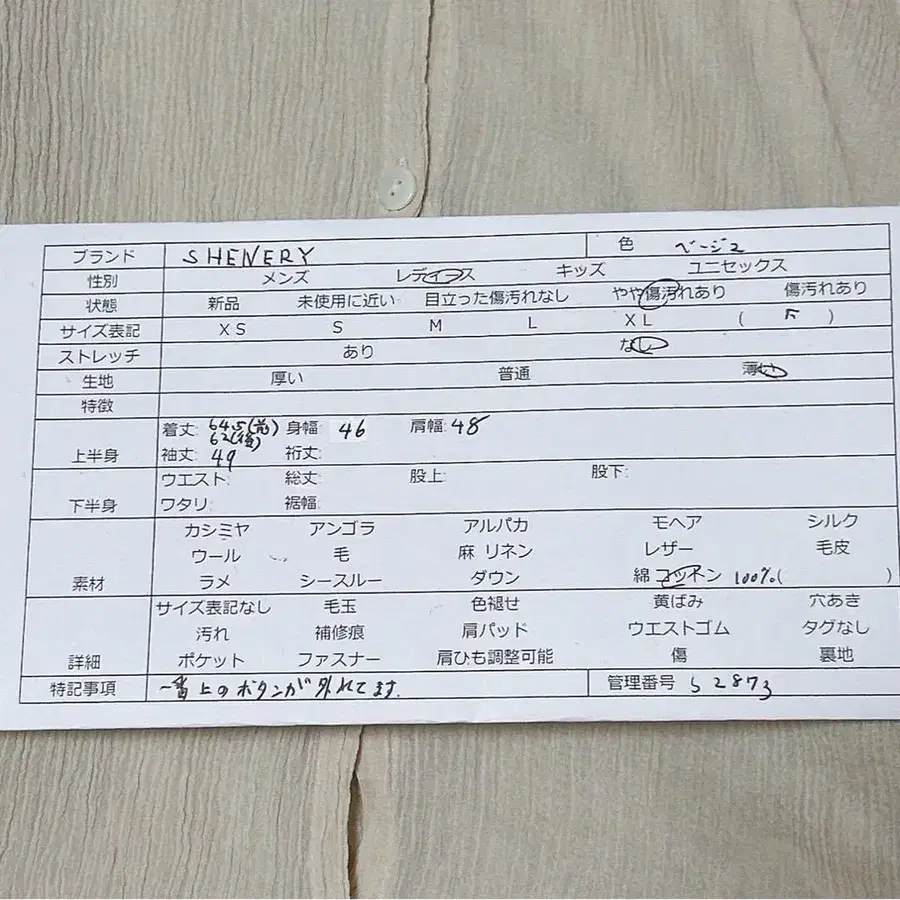 ブランド SHENERY 色 ベージュ
性別 メンズ レディース キッズ ユニセックス
状態 新品 未使用に近い 目立った傷汚れなし やや傷汚れあり 傷汚れあり
サイズ表記 XS S M L XL ( F )
ストレッチ あり なし
生地 厚い 普通 薄い
特徴
上半身 着丈: 64.5(前) 62(後) 身幅: 46 肩幅: 48
袖丈: 49 裄丈:
下半身 ウエスト: 総丈: 股上: 股下:
ワタリ: 裾幅:
カシミヤ アンゴラ アルパカ モヘア シルク
ウール 毛 麻 リネン レザー 毛皮
素材 ラメ シースルー ダウン 綿 コットン 100%( )
サイズ表記なし 毛玉 色褪せ 黄ばみ 穴あき
汚れ 補修痕 肩パッド ウエストゴム タグなし
詳細 ポケット ファスナー 肩ひも調整可能 傷 裏地
特記事項 一番上のボタンが外れてます. 管理番号 S2873